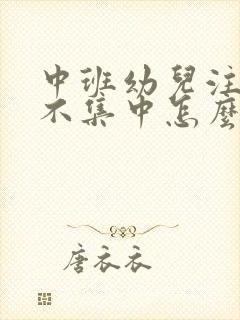 中班幼兒注
不集中怎麼
唐衣衣